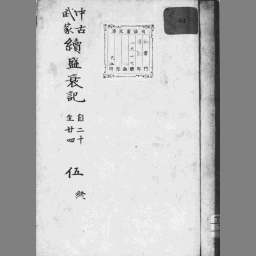 中古
武家
續盛衰記
自二十
至廿四
伍
終